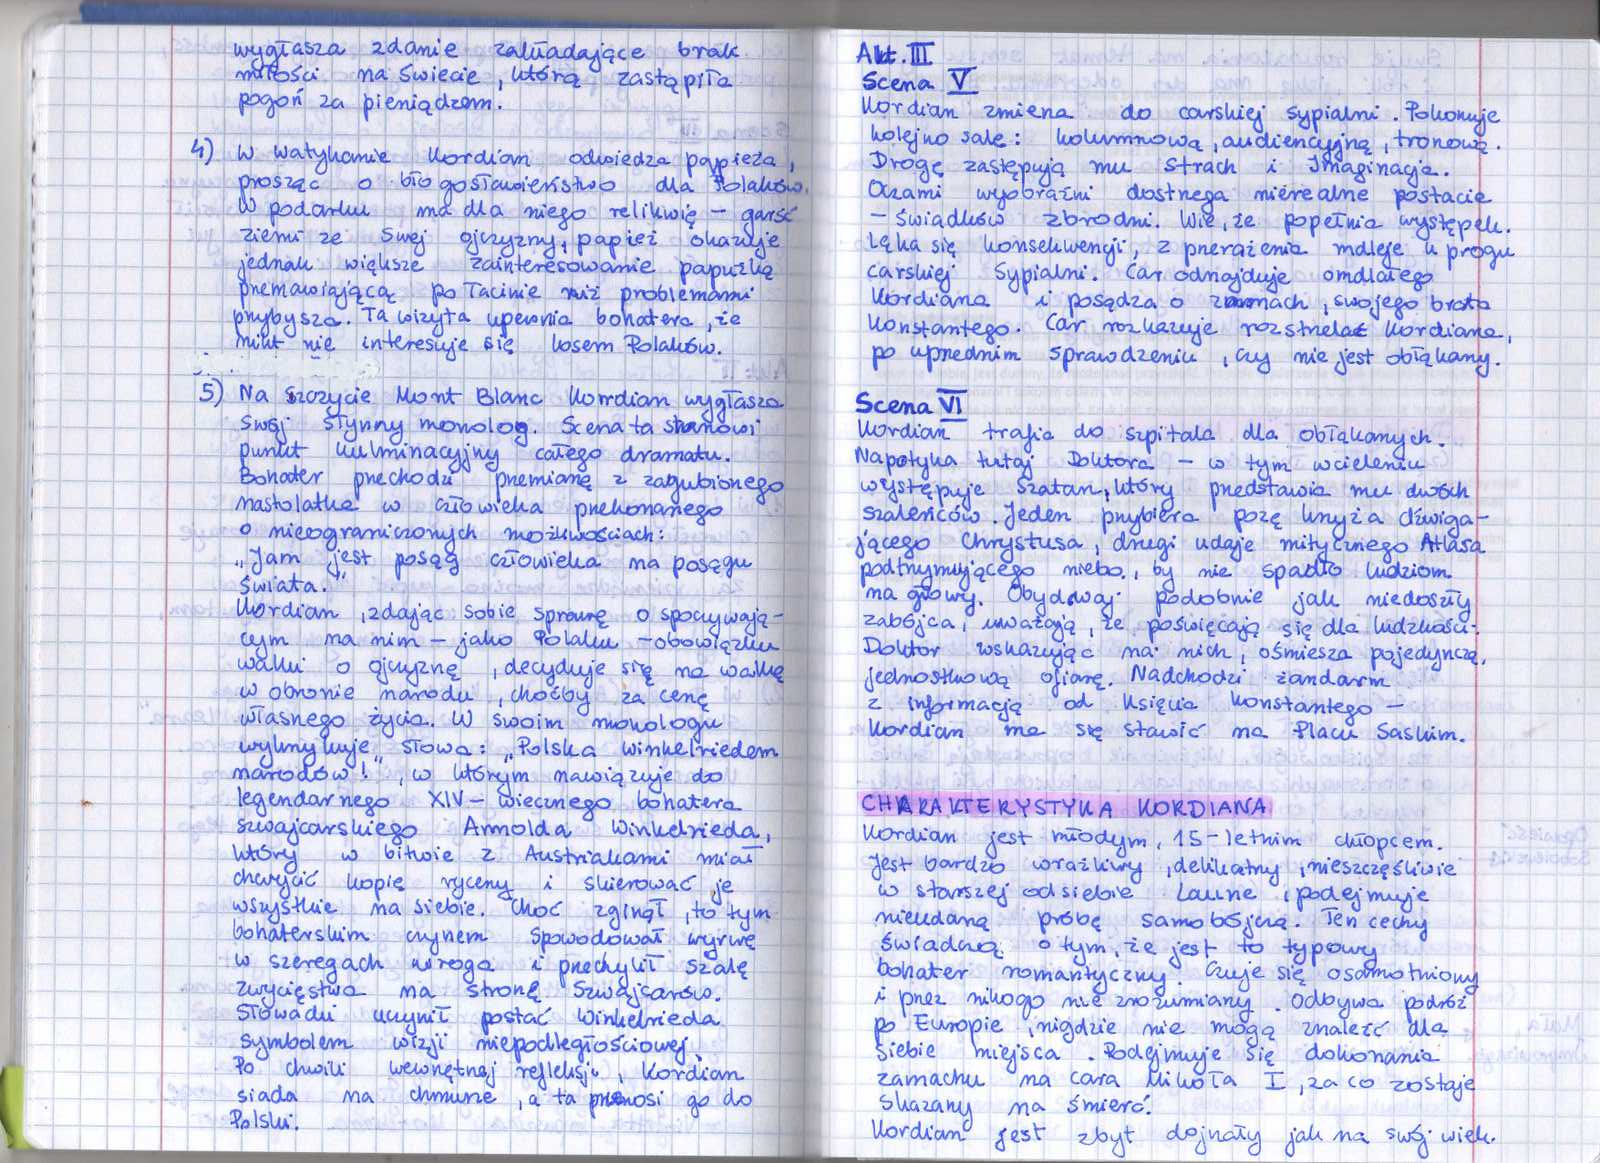 wygłasza zdanie zakładające brak
miłości na świecie, którą zastąpiła
pogoń za pieniądzem.
4) W watykanie Kordian odwiedza papieża,
prosząc o błogosławieństwo dla Polaków.
W podarku ma dla niego relikwię – garść
ziemi ze swej ojczyzny, papież okazuje
jednak większe zainteresowanie papużką
przemawiającą po łacinie niż problemami
przybysza. Ta wizyta upewnia bohatera, że
nikt nie interesuje się losem Polaków.
5) Na szczycie Mont Blanc Kordian wygłasza
swój słynny monolog. Scena ta stanowi
punkt kulminacyjny całego dramatu.
Bohater przechodzi przemianę z zagubionego
nastolatka w człowieka przekonanego
o nieograniczonych możliwościach:
„Jam jest posąg człowieka na posągu
świata."
Kordian, zdając sobie sprawę o spoczywają-
cym na nim – jako Polaku – obowiązku
walki o ojczyznę, decyduje się na walkę
w obronie narodu, choćby za cenę
własnego życia. W swoim monologu
wykrzykuje słowa: „Polska winkelriedem
narodów!", w którym nawiązuje do
legendarnego XIV – wiecznego bohatera
szwajcarskiego Arnolda Winkelrieda,
który w bitwie z Austriakami miał
chwycić kopię rycerzy i skierować je
wszystkie na siebie. Choć zginął, to tym
bohaterskim czynem spowodował wyrwę
w szeregach wroga i przechylił szalę
zwycięstwa na stronę Szwajcarów.
Słowacki uczynił postać Winkelrieda
symbolem wizji niepodległościowej.
Po chwili wewnętrznej refleksji, Kordian
siada na chmurze, a ta przenosi go do
Polski.
Akt. III
Scena V
Kordian zmierza do carskiej sypialni. Pokonuje
kolejno sale: kolumnową, audiencyjną, tronową.
Drogę zastępują mu Strach i Imaginacja.
Oczami wyobraźni dostrzega nierealne postacie
– świadków zbrodni. Wie, że popełnia występek.
Lęka się konsekwencji, z przerażenia mdleje u progu
carskiej sypialni. Car odnajduje omdlałego
Kordiana i posądza o zamach, swojego brata
Konstantego. Car rozkazuje rozstrzelać Kordiana,
po uprzednim sprawdzeniu, czy nie jest obłąkany.
Scena VI
Kordian trafia do szpitala dla obłąkanych.
Napotyka tutaj Doktora – w tym wcieleniu
występuje Szatan, który przedstawia mu dwóch
szaleńców. Jeden przybiera pozę krzyża dźwiga-
jącego Chrystusa, drugi udaje mitycznego Atlasa
podtrzymującego niebo, by nie spadło ludziom
na głowy. Obydwaj podobnie jak niedoszły
zabójca, uważają, że poświęcają się dla ludzkości.
Doktor wskazując na nich, ośmiesza pojedynczą,
jednostkową ofiarę. Nadchodzi żandarm
z informacją od Księcia Konstantego –
Kordian ma się stawić na Placu Saskim.
CHARAKTERYSTYKA KORDIANA
Kordian jest młodym, 15-letnim chłopcem.
Jest bardzo wrażliwy, delikatny, nieszczęśliwie
w starszej od siebie Laurze, podejmuje
nieudaną próbę samobójczą. Ten cechy
świadczą o tym, że jest to typowy
bohater romantyczny. Czuje się osamotniony
i przez nikogo nie zrozumiany. Odbywa podróż
po Europie, nigdzie nie mogą znaleźć dla
siebie miejsca. Podejmuje się dokonania
zamachu na cara Mikoła I, za co zostaje
skazany na śmierć.
Kordian jest zbyt dojrzały jak na swój wiek.